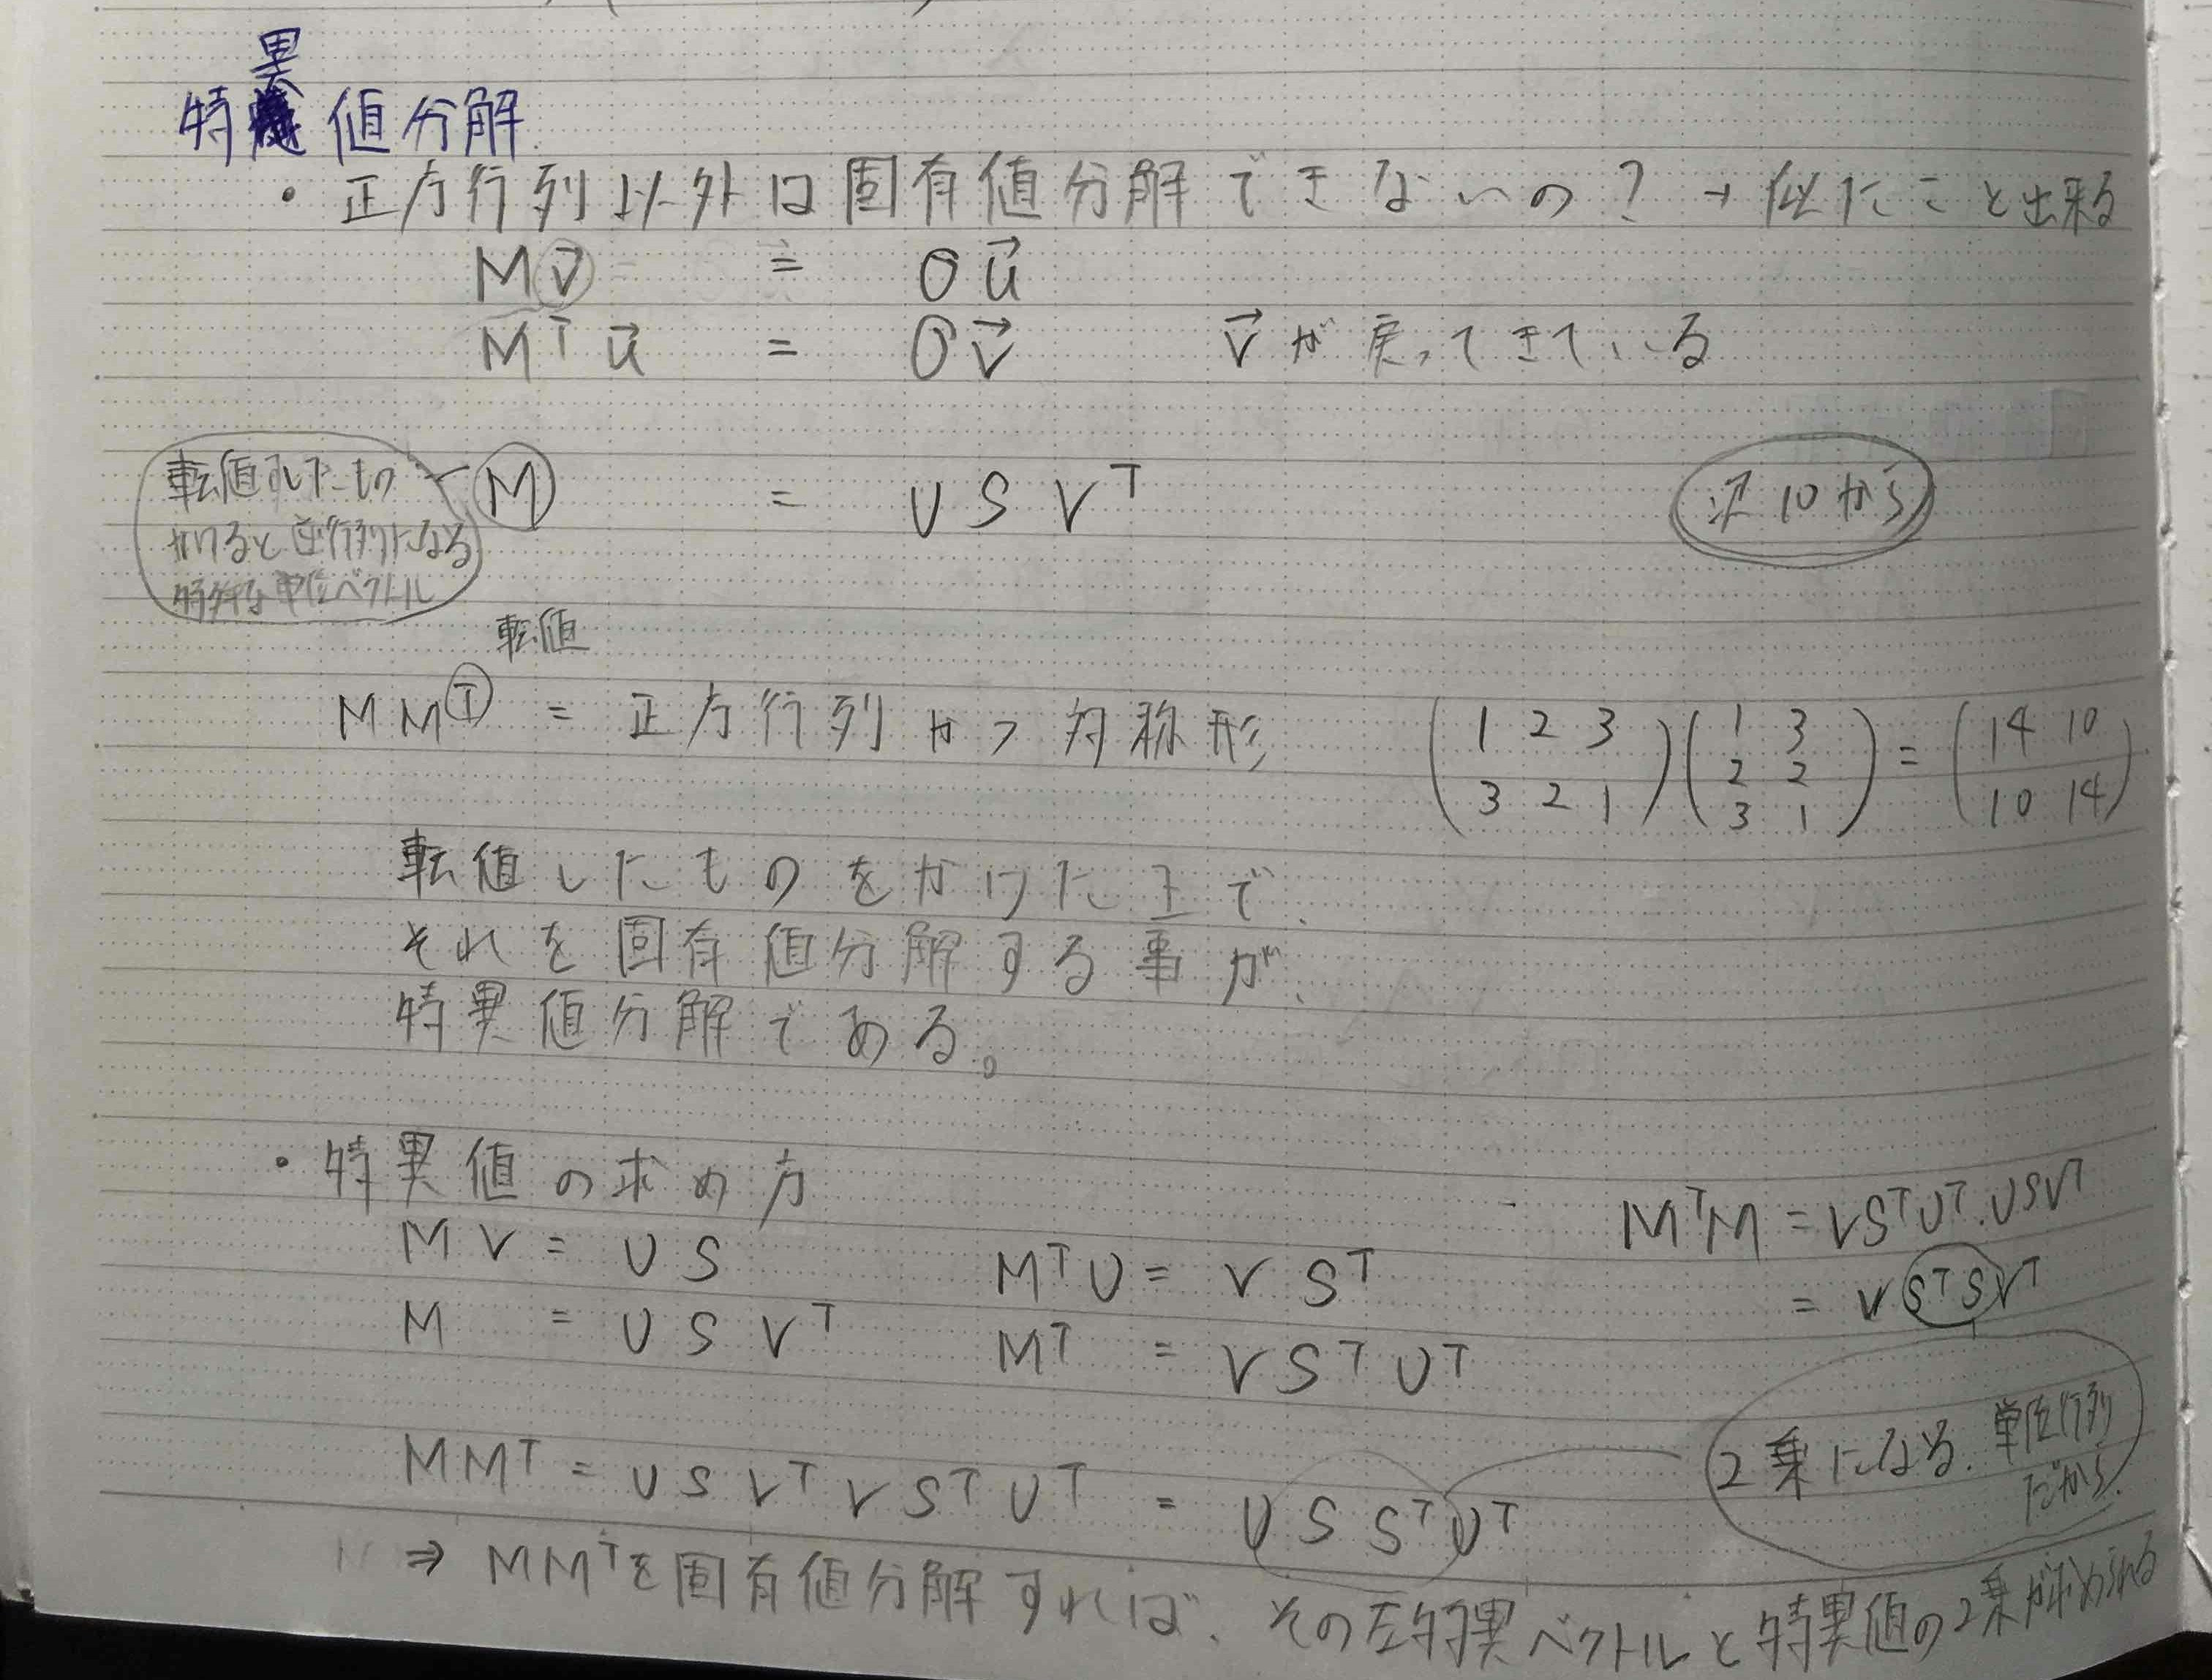 特異値分解
・正方行列以外は固有値分解できないの? → 似たこと出来る
M v⃗ = σ u⃗
Mᵀ u⃗ = σ v⃗ v⃗が戻ってきている
転値したもの
かけると逆行列になる
特殊な単位ベクトル
M = U S Vᵀ
次10から
転値
M Mᵀ = 正方行列かつ対称形
(1 2 3 / 3 2 1)(1 3 / 2 2 / 3 1) = (14 10 / 10 14)
転値したものをかけた上で、
それを固有値分解する事が、
特異値分解である。
・特異値の求め方
M V = U S
M = U S Vᵀ
Mᵀ U = V Sᵀ
Mᵀ = V Sᵀ Uᵀ
MᵀM = V Sᵀ Uᵀ . U S Vᵀ
= V Sᵀ S Vᵀ
2乗になる. 単位行列
だから.
M Mᵀ = U S Vᵀ V Sᵀ Uᵀ = U S Sᵀ Uᵀ
⇒ M Mᵀを固有値分解すれば、その左特異ベクトルと特異値の2乗が求められる